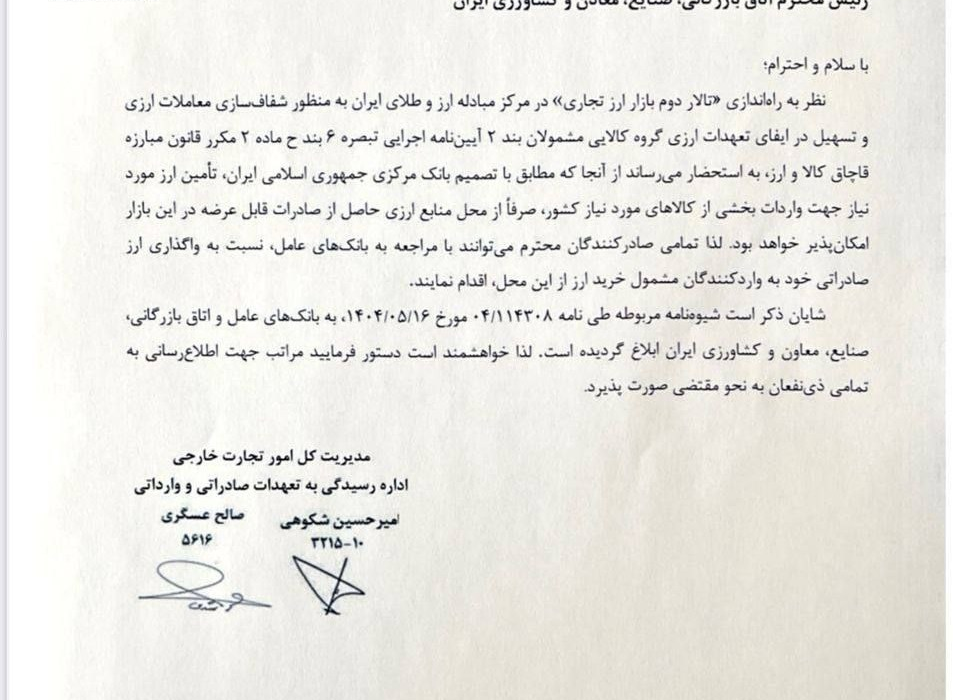 رئیس محترم اتاق بازرگانی، صنایع، معادن و کشاورزی ایران
با سلام و احترام؛
نظر به راه‌اندازی «تالار دوم بازار ارز تجاری» در مرکز مبادله ارز و طلای ایران به منظور شفاف‌سازی معاملات ارزی
و تسهیل در ایفای تعهدات ارزی گروه کالایی مشمولان بند ۲ آیین‌نامه اجرایی تبصره ۶ بند ح ماده ۲ مکرر قانون مبارزه
قاچاق کالا و ارز، به استحضار می‌رساند از آنجا که مطابق با تصمیم بانک مرکزی جمهوری اسلامی ایران، تأمین ارز مورد
نیاز جهت واردات بخشی از کالاهای مورد نیاز کشور، صرفاً از محل منابع ارزی حاصل از صادرات قابل عرضه در این بازار
امکان‌پذیر خواهد بود. لذا تمامی صادرکنندگان محترم می‌توانند با مراجعه به بانک‌های عامل، نسبت به واگذاری ارز
صادراتی خود به واردکنندگان مشمول خرید ارز از این محل، اقدام نمایند.
شایان ذکر است شیوه‌نامه مربوطه طی نامه ۰۴/۱۱۴۳۰۸ مورخ ۱۴۰۴/۰۵/۱۶، به بانک‌های عامل و اتاق بازرگانی،
صنایع، معاون و کشاورزی ایران ابلاغ گردیده است. لذا خواهشمند است دستور فرمایید مراتب جهت اطلاع‌رسانی به
تمامی ذی‌نفعان به نحو مقتضی صورت پذیرد.
مدیریت کل امور تجارت خارجی
اداره رسیدگی به تعهدات صادراتی و وارداتی
امیرحسین شکوهی صالح عسگری
۳۲۱۵-۱۰ ۵۶۱۶